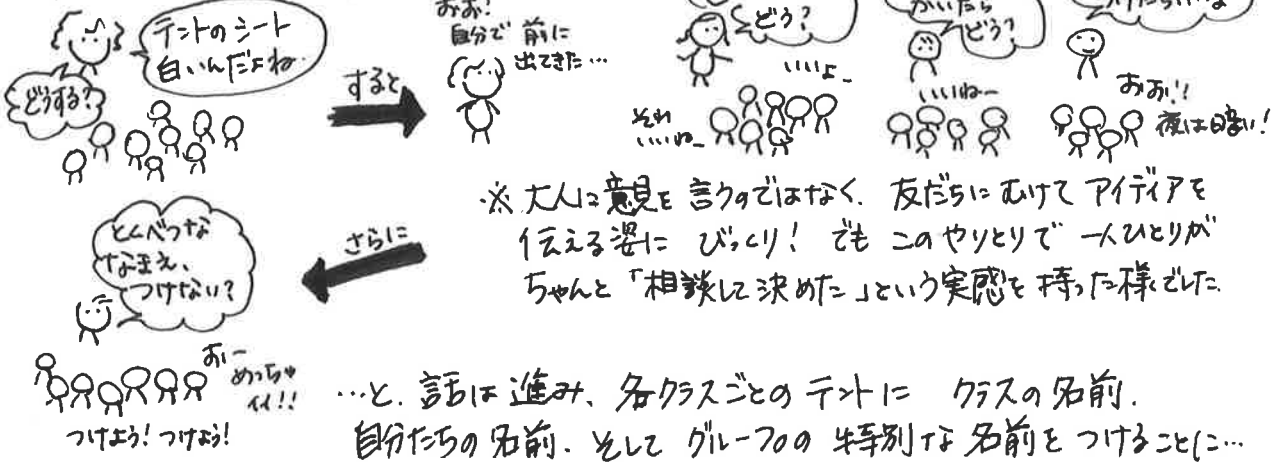 テントのシート
白いんだよね.
どうする?
すると
おお!
自分で前に
出てきた…
どう?
いいよー
それ
いいねー
かいたら
どう?
いいねー
おお!!
夜は暗い!
※大人に意見を言うのではなく、友だちにむけてアイディアを
伝える姿に びっくり! でも このやりとりで 一人ひとりが
ちゃんと「相談して決めた」という実感を持った様でした.
さらに
とくべつな
なまえ、
つけない?
おー
めっちゃ
イイ!!
つけよう!つけよう!
…と、話は進み、各クラスごとのテントに クラスの名前.
自分たちの名前.そして グループの 特別な 名前を つけることに…